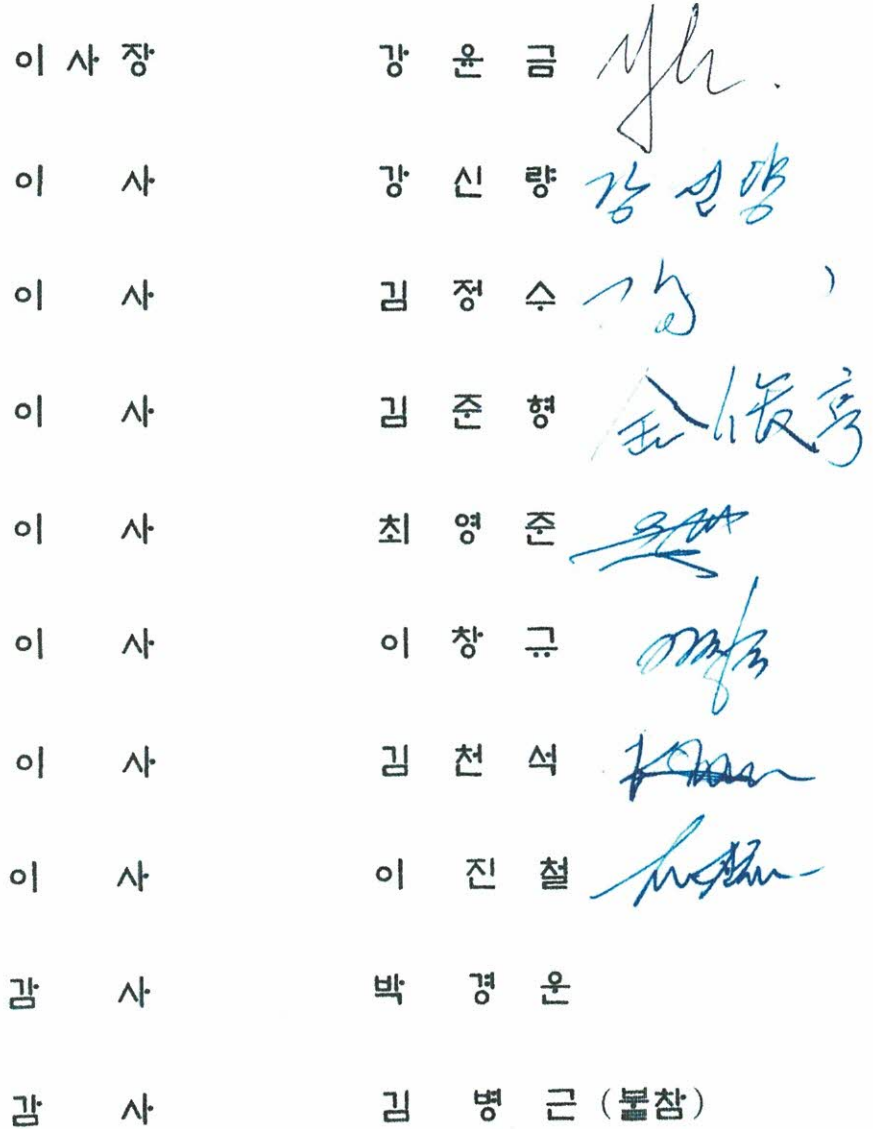 이 사 장 강 윤 금
이 사 강 신 량 강 신 량
이 사 김 정 수
이 사 김 준 형 金 俊 亨
이 사 최 영 준
이 사 이 창 규
이 사 김 천 석
이 사 이 진 철
감 사 박 경 운
감 사 김 병 근 (불참)